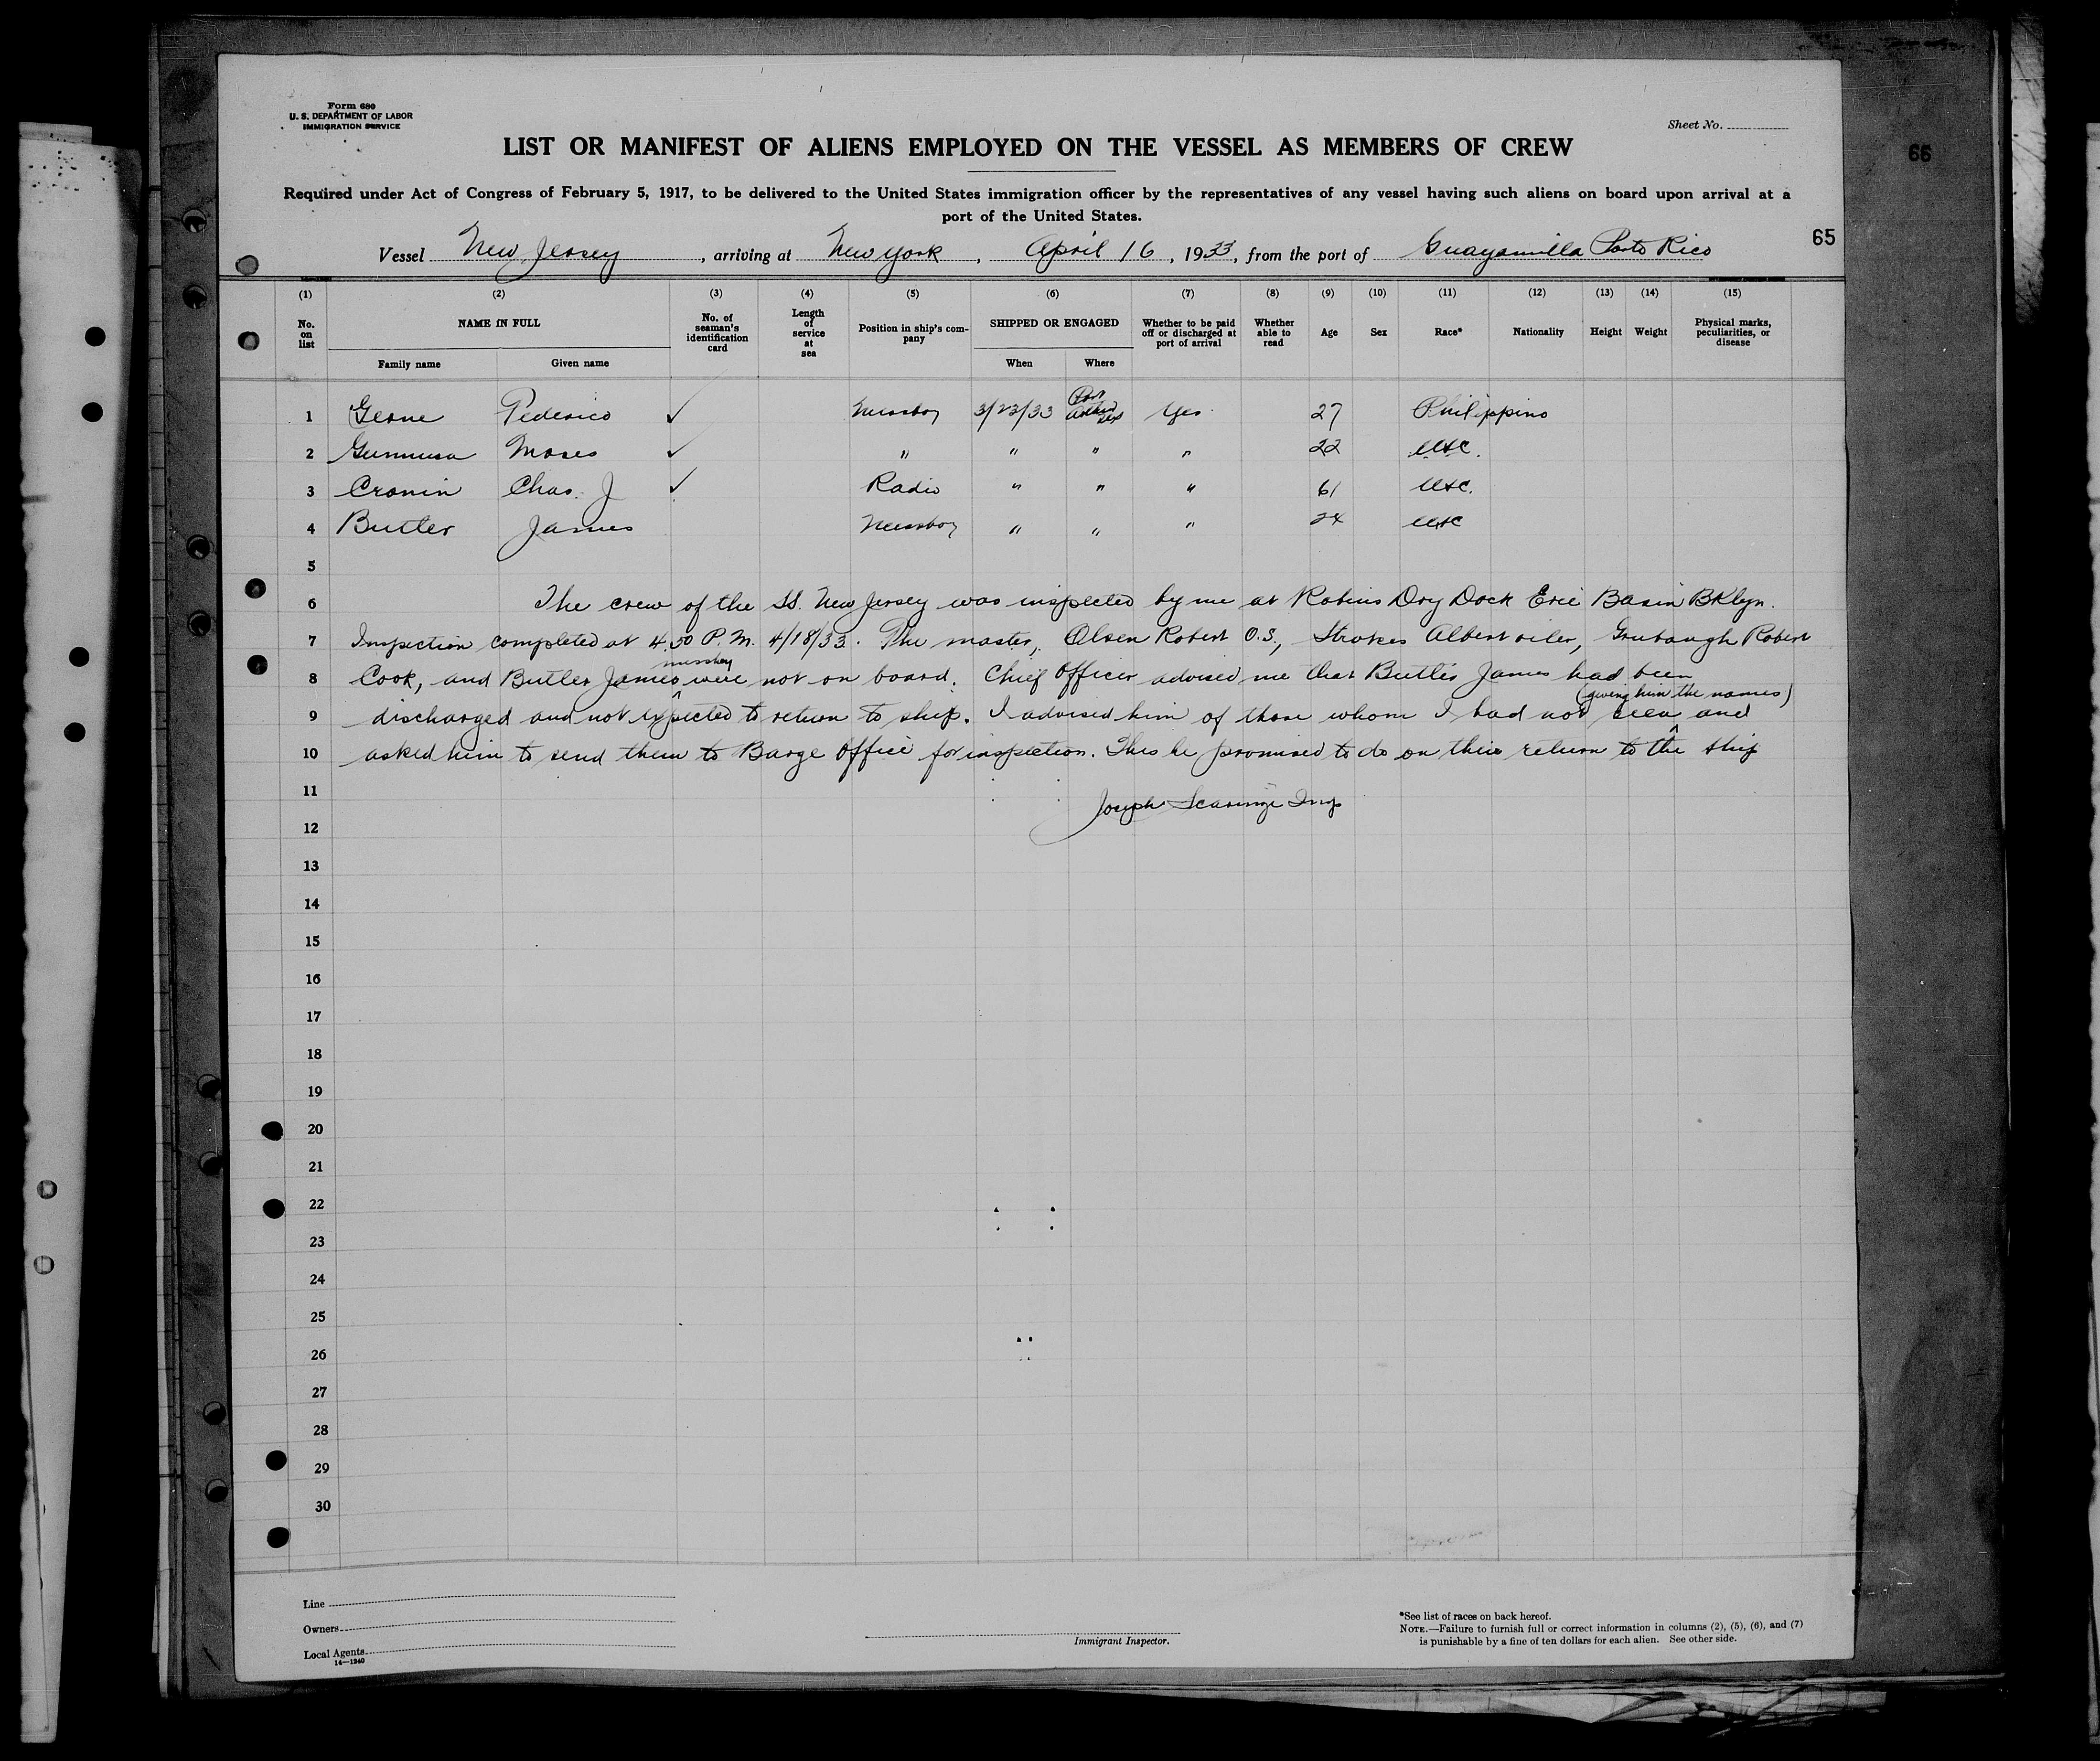 Form 680
U. S. DEPARTMENT OF LABOR
IMMIGRATION SERVICE
Sheet No.
LIST OR MANIFEST OF ALIENS EMPLOYED ON THE VESSEL AS MEMBERS OF CREW
66
Required under Act of Congress of February 5, 1917, to be delivered to the United States immigration officer by the representatives of any vessel having such aliens on board upon arrival at a
port of the United States.
65
Vessel New Jersey, arriving at New York, April 16, 1933, from the port of Guayamilla Porto Rico
(1) (2) (3) (4) (5) (6) (7) (8) (9) (10) (11) (12) (13) (14) (15)
No. on list NAME IN FULL No. of seaman's identification card Length of service at sea Position in ship's company SHIPPED OR ENGAGED Whether to be paid off or discharged at port of arrival Whether able to read Age Sex Race* Nationality Height Weight Physical marks, peculiarities, or disease
Family name Given name When Where
1 Gerne Federico ✓ Messboy 3/23/33 Port Yes 27 Philippino
2 Moses ✓ " " " " 22 USC.
3 Cronin Chas. J ✓ Radio " " " 61 USC.
4 Butler James Messboy " " " 24 USC
5
6 The crew of the SS. New Jersey was inspected by me at Robins Dry Dock Erie Basin BKlyn.
7 Inspection completed at 4.50 P.M. 4/18/33. The master, Olsen Robert O.S., Strokes Albert oiler, Grubaugh Robert
messboy
8 Cook, and Butler James were not on board. Chief Officer advised me that Butler James had been
(giving him the names)
9 discharged and not expected to return to ship. I advised him of those whom I had not seen and
10 asked him to send them to Barge Office for inspection. This he promised to do on their return to the ship
11 Joseph Scaringe Insp
12
13
14
15
16
17
18
19
20
21
22
23
24
25
26
27
28
29
30
Line
Owners
Local Agents
14—1240
Immigrant Inspector.
*See list of races on back hereof.
NOTE.—Failure to furnish full or correct information in columns (2), (5), (6), and (7)
is punishable by a fine of ten dollars for each alien. See other side.